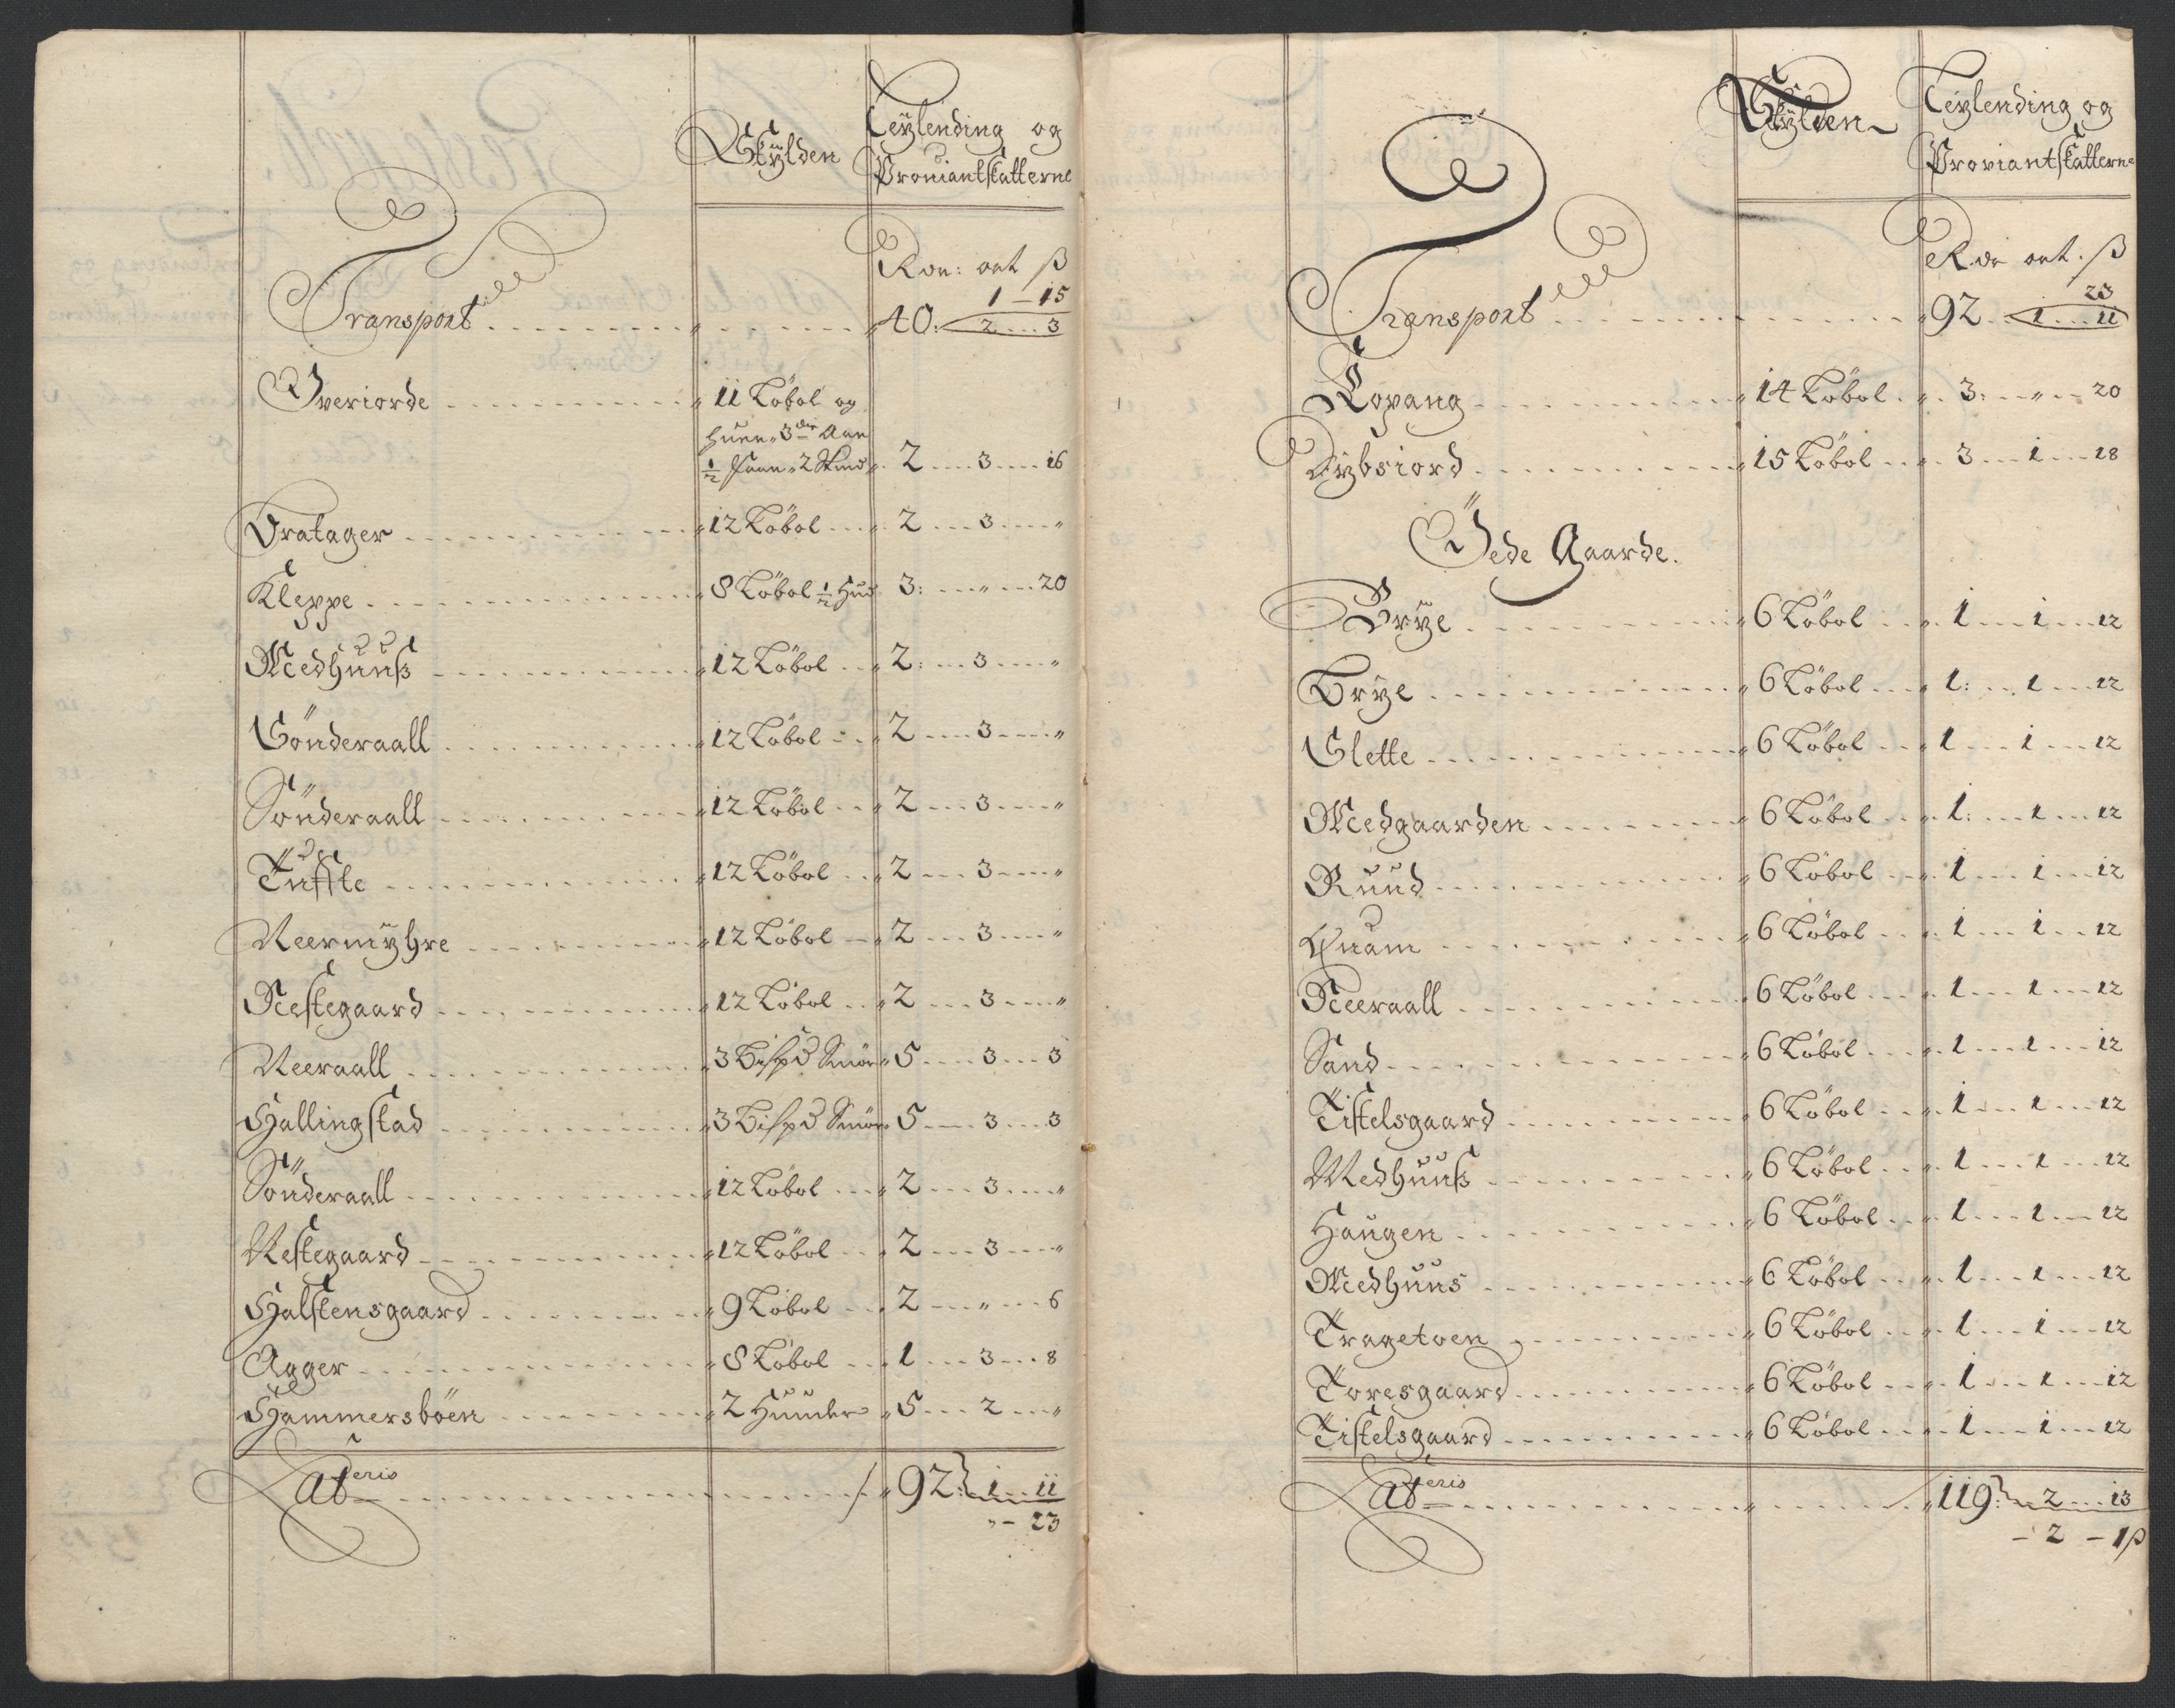 Skylden
Leylending og
Proviantskatterne
Rdr: ort ß
1 - 15
Transport " 40: 2 3
Overiorde " 11 Löbol og
huer 3die Aar
1/2 faar 2 Skind " 2 3 16
Vratager " 12 Löbol " 2 3 "
Kleppe " 8 Löbol 1/2 Hud 3: " 20
Medhuuß " 12 Löbol " 2: 3 "
Sönderaall " 12 Löbol " 2 3 "
Sönderaall " 12 Löbol " 2 3 "
Tuffte " 12 Löbol " 2 3 "
Neermÿhre " 12 Löbol " 2 3 "
Nestegaard " 12 Löbol " 2 3 "
Neeraall " 3 Bispd Smör " 5 3 3
Hallingstad " 3 Bispd Smör " 5 3 3
Sönderaall " 12 Löbol " 2 3 "
Nestegaard " 12 Löbol " 2 3 "
Halstensgaard " 9 Löbol 2 " 6
Agger " 8 Löbol 1 3 8
Hammersböen " 2 Huuder " 5 2 "
Lateris " 92: 1 11
" - 23
Skylden
Leylending og
Proviantskatterne
Rdr ort. ß
23
Transport " 92 1 11
Kopang " 14 Löbol " 3: " 20
Dybsiord " 15 Löbol " 3 1 18
Öede Gaarde.
Brÿe " 6 Löbol " 1 1 12
Brÿe " 6 Löbol " 1: 1 12
Slette " 6 Löbol " 1 1 12
Medgaarden " 6 Löbol " 1: 1 12
Ruud " 6 Löbol " 1 1 12
Quam " 6 Löbol " 1 1 12
Neeraall " 6 Löbol " 1 1 12
Sand " 6 Löbol " 1 1 12
Tistelsgaard " 6 Löbol " 1 1 12
Medhuuß " 6 Löbol " 1 1 12
Haugen " 6 Löbol " 1 1 12
Medhuus " 6 Löbol " 1 1 12
Tragetoen " 6 Löbol " 1 1 12
Toresgaard " 6 Löbol " 1 1 12
Tistelsgaard " 6 Löbol " 1 1 12
Lateris " 119: 2 13
- 2 - 1ß